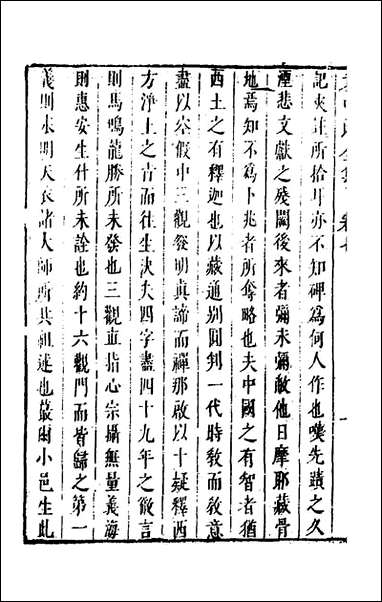 記夾註所拾耳亦不知碑為何人作也嘆先蹟之久
湮悲文獻之殘闕後來者彌未彌敢他日摩那藏骨
地焉知不為卜兆者所奪略也夫中國之有智者猶
西土之有釋迦也以藏通別圓判一代時教而教意
盡以空假中三觀發明真諦而禪那啟以十疑釋西
方淨土之旨而往生決失四字盡四十九年之微言
則馬鳴龍勝所未發也三觀直指心宗攝無量義海
則惠安生什所未詮也約十六觀門而皆歸之第一
義則永明天衣諸大師所共祖述也蕞爾小邑生此